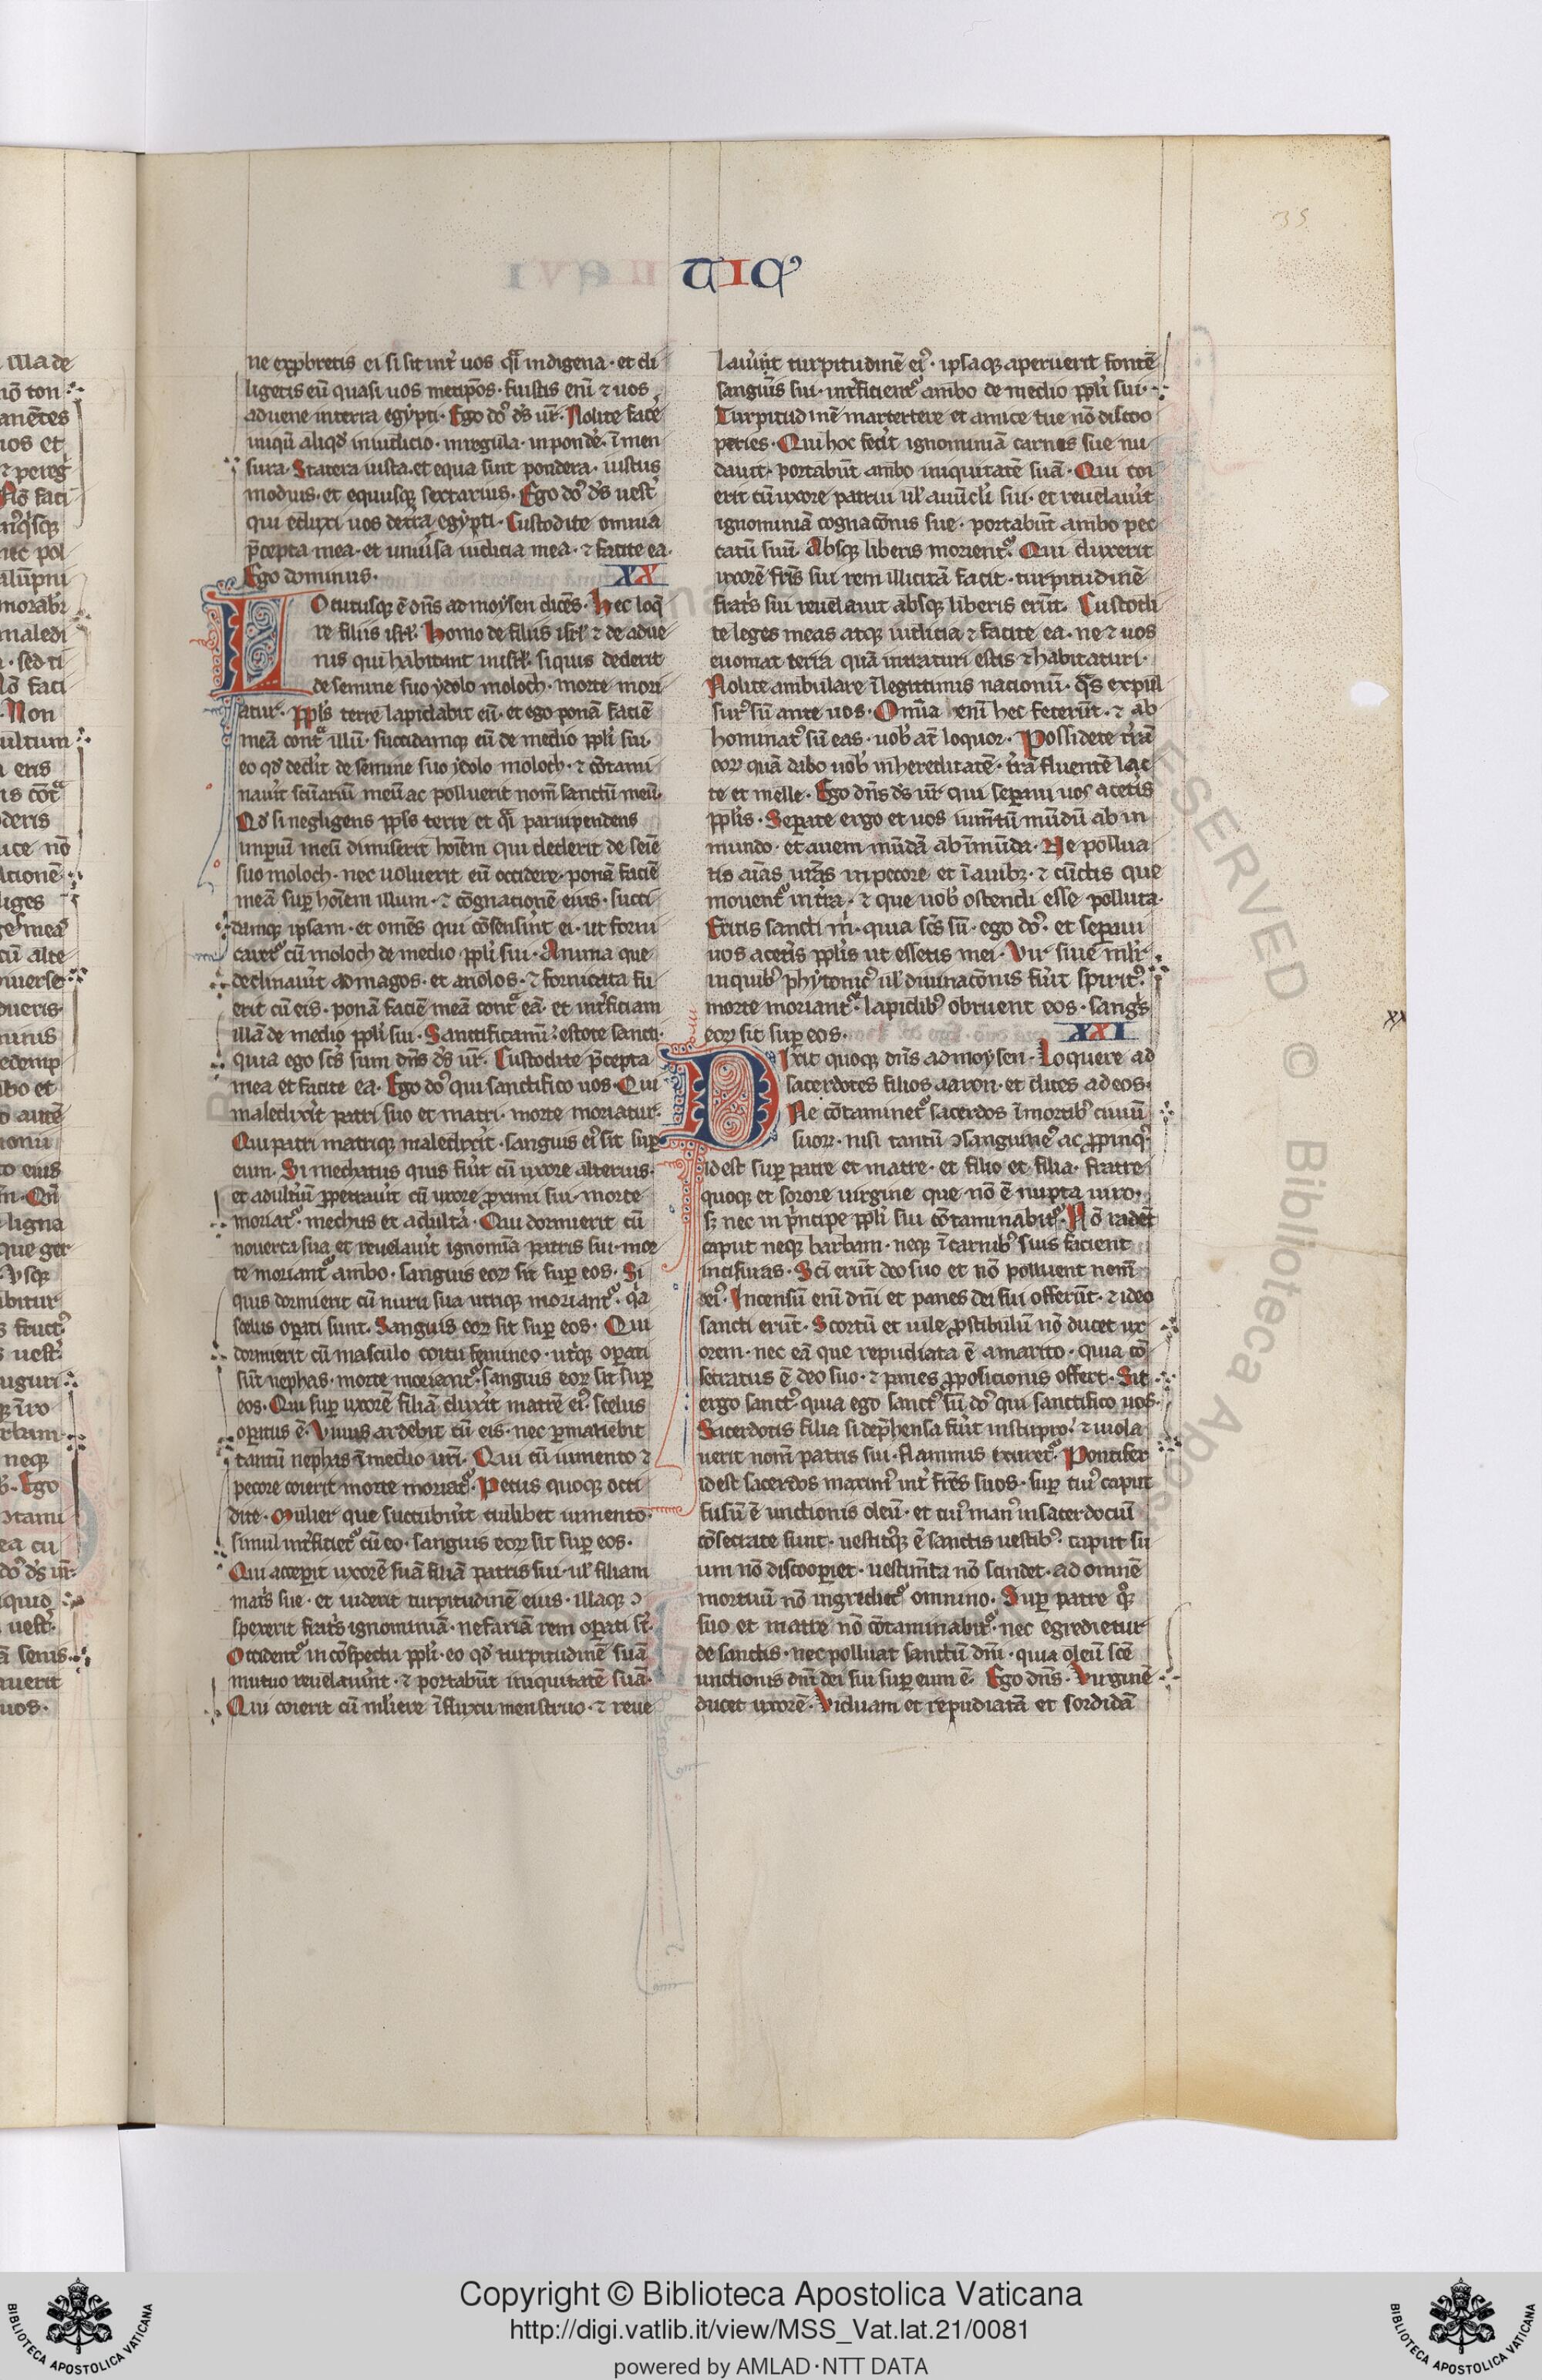 35
TIC᾽
ne exp̱bretis ei si sit int᾽ uos qͣi indigena · et di
ligetis eū quasi uos metip̄os · fuistis eni᷑ ⁊ uos
aduene in terra egẏpti · Ego do᷒ ds̄ ur᷑ · Nolite facẽ
iniqū aliqd᷒ in iudicio · in regula · in pondẽ · i᷑ men
sura · Statera iusta · et equa sint pondera · iustus
modius · et equusqꝫ sextarius · Ego do᷒ ds̄ uest᷑
qui eduxi uos de tr̄a egẏpti · Custodite omnia
p̄cepta mea · et uniu᷑sa iudicia mea · ⁊ facite ea ·
Ego dominus · XX
Locutusqꝫ ē dn̄s ad moẏsen dice᷑s · Hec loq̄
re filiis isrl᷑ · Homo de filiis isrl᷑ ⁊ de adue
nis qui habitant in isrl᷑ · siquis dederit
de semine suo ẏdolo moloch · morte mori
atur · Ppl᷑s terre lapidabit eū · et ego ponā faciē
meā contͣ illū · succidamqꝫ eū de medio ppl᷑i sui ·
eo qd᷒ dedit᷑ de semine suo ẏdolo moloch · ⁊ cōtami
nau᷑it scu᷑ariū meū ac polluerit nom̄ sanctū meū ·
Qd᷒ si negligens ppl᷑s terre et qͣi paruipendens
imperiū meū dimiserit hoi᷑em qui dederit de sei᷑e
suo moloch · nec uoluerit eū occidere · ponā faciē
meā suꝑ hoi᷑em illum · ⁊ cōgnationē eius · succi
damqꝫ ipsam · et omēs qui cōsensi᷑nt ei · ut forni
caret᷒ cū moloch de medio ppl᷑i sui · Anima que
declinau᷑it ad magos · et ariolos · ⁊ fornicata fu
erit cū eis · ponā faciē meā contͣ eā · et int᷑ficiam
illā de medio ppl᷑i sui · Sanctificamī · estote sancti ·
quia ego scs̄ sum dn̄s ds̄ ur᷑ · Custodite p̄cepta
mea et facite ea · Ego do᷒ qui sanctifico uos · Qui
maledix᷑it patri suo et matri · morte moriatur ·
Qui patri matrique maledix᷑it · sanguis ei᷒ sit suꝑ
eum · Si mechatus quis fu᷑it cū uxore alterius ·
et adult᷑iū ꝑpetrau᷑it cū uxore ꝓximi sui · morte
moriat᷒ · mechus et adult᷑a · Qui dormierit cū
nouerca sua et reuelau᷑it ignomi᷑a patris sui · mor
te moriant᷒ ambo · sanguis eoꝝ sit suꝑ eos · Si
quis dormierit cū nuru sua uterque moriant᷒ · qͥa
scelus oꝑati sunt · Sanguis eoꝝ sit suꝑ eos · Qui
dormierit cū masculo coitu femineo · ut᷑qꝫ oꝑati
su᷑t nephas · morte moriant᷒ · sanguis eoꝝ sit suꝑ
eos · Qui suꝑ uxorē filiā dux᷑it matrē ei᷒ · scelus
oꝑatus ē · Viuus ardebit cū eis · nec ꝑmanebit
tantū nephas i᷑ medio ur᷑i · Qui cū iumento ⁊
pecore coierit morte moriat᷒ · Pecus quoqꝫ occi
dite · Mulier que succubu᷑it cuilibet iumento ·
simul int᷑ficiet᷒ cū eo · sanguis eoꝝ sit suꝑ eos ·
Qui acceꝑit uxorē suā filiā patris sui · ul᷑ filiam
mat᷑s sue · et uiderit turpitudinē eius · illaqꝫ ↄ
spexerit frat᷑s ignominiā · nefariā rem oꝑati st᷑ ·
Occident᷒ in cōspectu ppl᷑i · eo qd᷒ turpitudinē suā
mutuo reuelau᷑int · ⁊ portabūt iniquitatē suā ·
Qui coierit cū mliere i᷑ fluxu menstruo · ⁊ reue
lau᷑int turpitudinē ei᷒ · ipsaqꝫ aperuerit fontē
sangui᷑s sui · int᷑ficient᷒ ambo de medio ppl᷑i sui ·
Turpitudinē matertere et amice tue nō discoo
peries · Qui hoc fec᷑it ignominiā carnis sue nu
dauit · portabūt ambo iniquitatē suā · Qui coi
erit cū uxore patrui ul᷑ auūcl᷑i sui · et reuelau᷑it
ignominiā cognacōnis sue · portabūt ambo pec
catū suū · Absqꝫ liberis morient᷒ · Qui duxerit
uxorē fr᷑is sui rem illicitā facit · turpitudinē
frat᷑s sui reuelauit absqꝫ liberis erūt · Custodi
te leges meas atqꝫ iudicia ⁊ facite ea · ne ⁊ uos
euomat terra quā intraturi estis ⁊ habitaturi ·
Nolite ambulare i᷑ legittimis nationū · qͣs expul
sur᷒ sū ante uos · Omia eni᷑ hec fecerūt · ⁊ ab
hominat᷒ sū eas · uob᷑ at᷑ loquor · Possidete tr̄ā
eoꝝ quā dabo uob᷑ in hereditatē · tr̄ā fluentē lac
te et melle · Ego dn̄s ds̄ ur᷑ qui separaui uos a cet᷑is
ppl᷑is · Separate ergo et uos iumn̄tū mūdū ab in
mundo · et auem mūdā ab i᷑mūda · Ne pollua
tis ai᷑as urͣs in pecore et i᷑ auibꝫ · ⁊ cūctis que
mouent᷒ in tr̄a · ⁊ que uob᷑ ostendi esse polluta ·
Eritis sancti m᷑i · quia scs̄ sū · ego do᷒ · et separaui
uos a cet᷑is ppl᷑is ut essetis mei · Vir siue ml᷑r
in quib᷒ phẏtonic᷒ ul᷑ diuinacōnis fu᷑it spirit᷒ ·
morte moriant᷒ · lapidib᷒ obruent eos · sang᷑s
eoꝝ sit suꝑ eos · XXI
Dixit quoqꝫ dn̄s ad moẏsen · Loquere ad
sacerdotes filios aaron · et dices ad eos ·
Ne cōtaminet᷒ sacerdos i᷑ mortib᷒ ciuiū
suoꝝ · nisi tantū ↄsanguine᷒ ac ꝓpinq᷒ ·
id est suꝑ patre et matre · et filio et filia · fratre
quoqꝫ et sorore uirgine que nō ē nupta uiro ·
sꝫ nec in pͥncipe ppl᷑i sui cōtaminabit᷒ · Nō radēt
caput neqꝫ barbam · neqꝫ i᷑ carnib᷒ suis facient
incisuras · Sci᷑ erūt deo suo et nō polluent nom̄
ei᷒ · Incensū eni᷑ dn̄i et panes dei sui offerūt · ⁊ ideo
sancti erūt · Scortū et uile ꝓstibulū nō ducet ux
orem · nec eā que repudiata ē a marito · quia cō
secratus ē deo suo · ⁊ panes ꝓposicionis offert · Sit
ergo sanct᷒ quia ego sanct᷒ sū do᷒ qui sanctifico uos ·
Sacerdotis filia si dep̄hensa fu᷑it in stupro · ⁊ uiola
uerit nom̄ patris sui · flammis exuret᷒ · Pontifex
id est sacerdos maxim᷒ int᷑ fr̄es suos · suꝑ cui᷒ caput
fusū ē unctionis oleū · et cui᷒ man᷒ in sacerdociū
cōsecrate sunt · uestitqꝫ ē sanctis uestib᷒ · caput su
um nō discooꝑiet · uestim̄ta nō scindet · ad omnē
mortuū nō ingrediet᷒ omnino · Suꝑ patre qͦꝫ
suo et matre nō cōtaminabit᷒ · nec egredietur
de sanctis · nec polluat sanctū dn̄i · quia oleū scē
unctionis dn̄i dei sui suꝑ eum ē · Ego dn̄s · Virginē
ducet uxorē · Viduam et repudiatā et sordidā
Copyright © Biblioteca Apostolica Vaticana
http://digi.vatlib.it/view/MSS_Vat.lat.21/0081
powered by AMLAD·NTT DATA
BIBLIOTECA APOSTOLICA VATICANA
BIBLIOTECA APOSTOLICA VATICANA